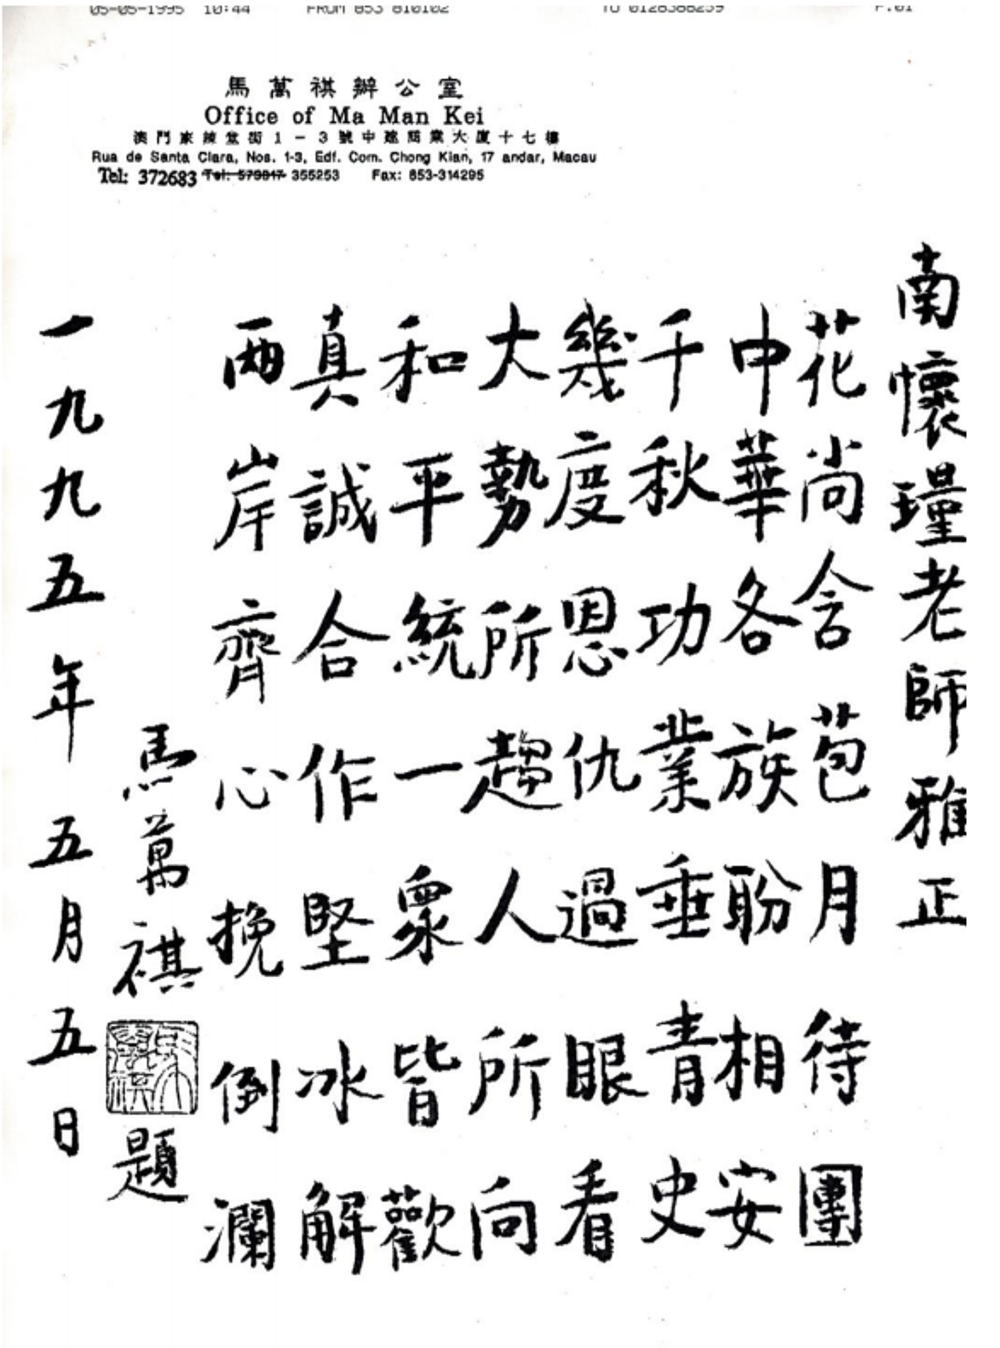 05-05-1995 10:44 FROM 853 810102 TO 0128388239 P.01
馬萬祺辦公室
Office of Ma Man Kei
澳門家辣堂街1-3號中建商業大廈十七樓
Rua de Santa Clara, Nos. 1-3, Edf. Com. Chong Kian, 17 andar, Macau
Tel: 372683 Tel: 579817 355253 Fax: 853-314295
南懷瑾老師雅正
花尚含苞月待團
中華各族盼相安
千秋功業垂青史
幾度恩仇過眼看
大勢所趨人所向
和平統一眾皆歡
真誠合作堅冰解
兩岸齊心挽倒瀾
馬萬祺題
一九九五年五月五日